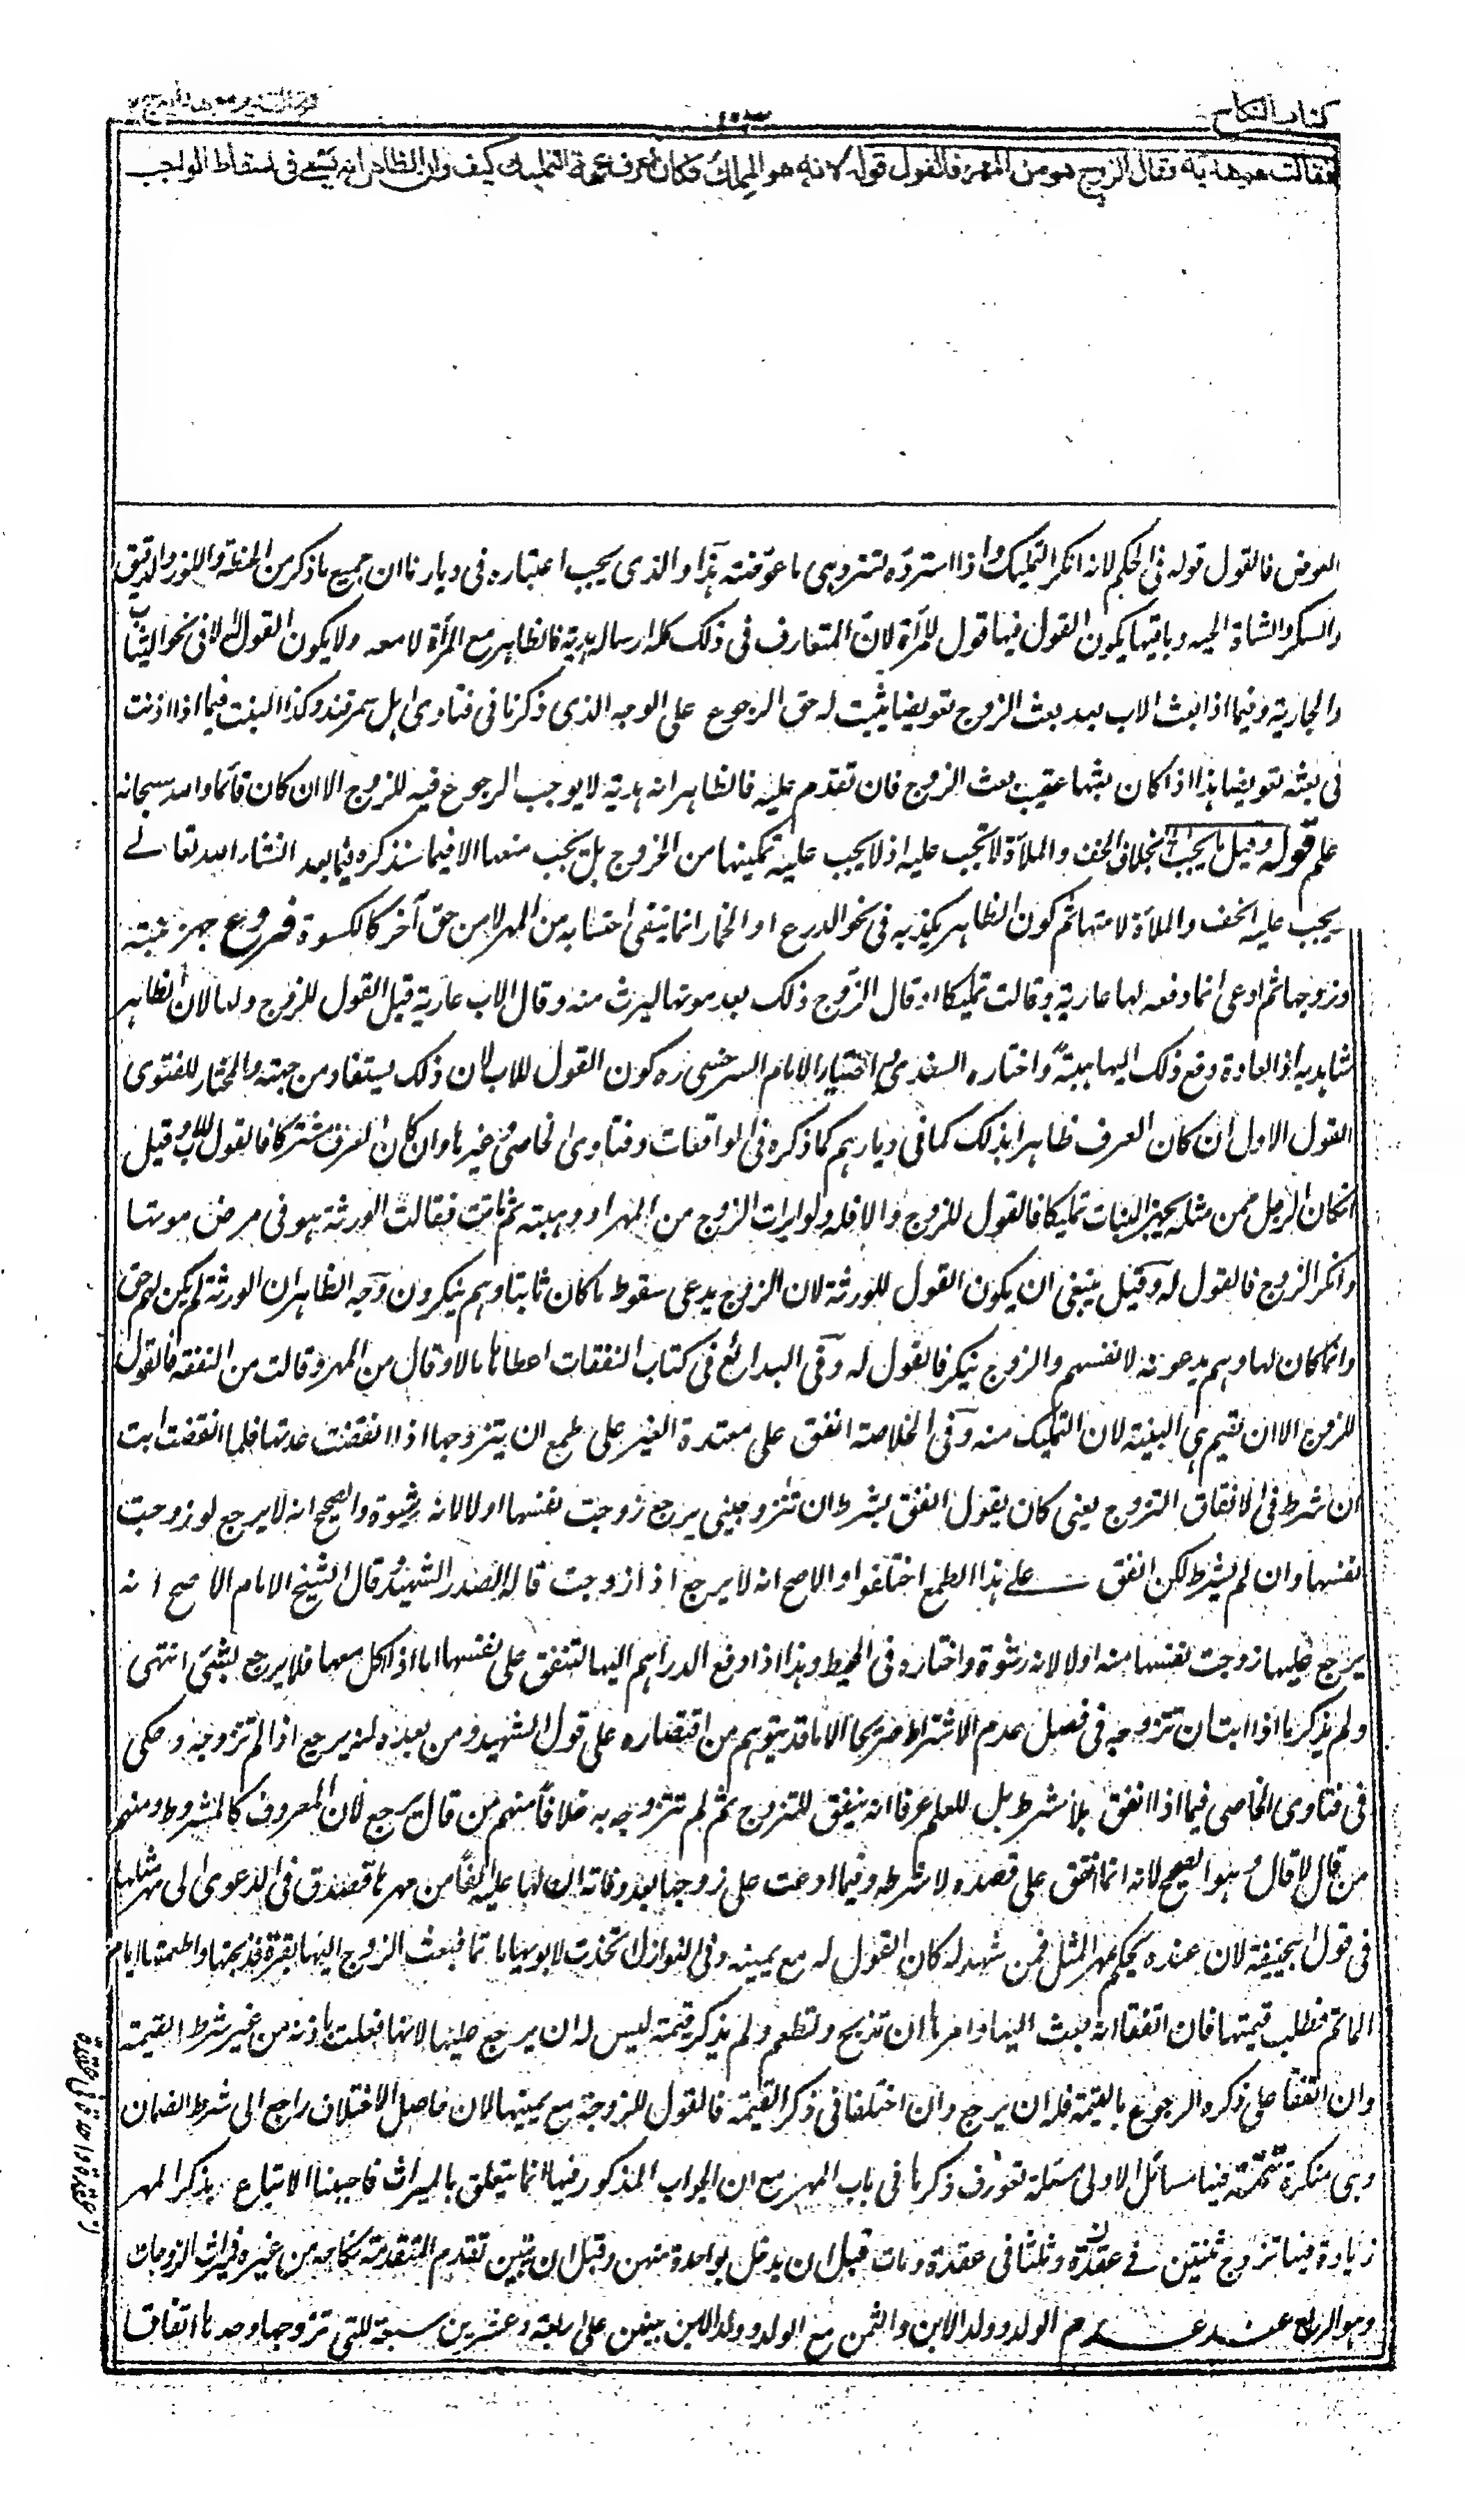 كتاب النكاح
فقالت هو هدية وقال الزوج هو من المهر فالقول قوله لانه هو المملك فكان اعرف بجهة التمليك كيف وان الظاهر انه يسعى فى اسقاط الواجب
العوض فالقول قوله فى الحكم لانه انكر التمليك واذا استرده تسترد هى ما عوضته هذا والذى يجب اعتباره فى ديارنا ان جميع ما ذكر من الحنطة واللوز والدقيق
والسكر والشاة الحية وباقيها يكون القول فيها قول المرأة لان المتعارف فى ذلك كله ارساله هدية فالظاهر مع المرأة لا معه ولا يكون القول له الا فى نحو الثياب
والجارية وفيما اذا بعث الاب بعد بعث الزوج تعويضا يثبت له حق الرجوع على الوجه الذى ذكرنا فى فتاوى اهل سمرقند وكذا البنت فيما اذا اذنت
فى بعثه تعويضا هذا اذا كان بعثها عقيب بعث الزوج فان تقدم عليه فالظاهر انه هدية لا يوجب الرجوع فيه للزوج الا ان كان قائما والله سبحانه
علم قوله وقيل ما يجب الخ بخلاف الخف والملاءة لا تجب عليه اذ لا يجب عليه تمكينها من الخروج بل يجب منعها الا فيما سنذكره فيما بعد انشاء الله تعالے
يجب عليه الخف والملاءة لامتها ثم كون الظاهر يكذبه فى نحو الدرع او الخمار انما ينفى احتسابه من المهر لا من حق آخر كالكسوة فروع جهز بنته
وزوجها ثم ادعى انما دفعه لها عارية وقالت تمليكا او قال الزوج ذلك بعد موتها ليرث منه وقال الاب عارية قيل القول للزوج ولها لان الظاهر
شاهد به اذ العادة دفع ذلك اليها هبة واختاره السغدى واختيار الامام السرخسى ره كون القول للاب لان ذلك يستفاد من جهته والمختار للفتوى
القول الاول ان كان العرف ظاهرا بذلك كما فى ديارهم كما ذكره فى الواقعات وفتاوى الخاصى وغيرها وان كان العرف مشتركا فالقول للاب وقيل
انكان الرجل ممن مثله يجهز البنات تمليكا فالقول للزوج والا فله ولو ابرأت الزوج من المهر او وهبته ثم ماتت فقالت الورثة هو فى مرض موتها
وانكر الزوج فالقول له وقيل ينبغى ان يكون القول للورثة لان الزوج يدعى سقوط ما كان ثابتا وهم ينكرون وجه الظاهر ان الورثة لم يكن لهم حق
وانما كان لها وهم يدعونه لانفسهم والزوج ينكر فالقول له وفى البدائع فى كتاب النفقات اعطاها مالا وقال من المهر وقالت من النفقة فالقول
للزوج الا ان تقيم هى البينة لان التمليك منه وفى الخلاصة انفق على معتدة الغير على طمع ان يتزوجها اذا انقضت عدتها فلما انقضت ابت
ان شرط فى الانفاق التزوج يعنى كان يقول انفق بشرط ان تتزوجينى يرجع زوجت نفسها او لا لانه رشوة والصحيح انه لا يرجع لو زوجت
نفسها وان لم يشرط لكن انفق علے هذا الطمع اختلفوا والاصح انه لا يرجع اذا زوجت قاله الصدر الشهيد وقال الشيخ الامام الاصح انه
يرجع عليها زوجت نفسها منه او لا لانه رشوة واختاره فى المحيط وهذا اذا دفع الدراهم اليها لتنفق على نفسها اما اذا اكل معها فلا يرجع بشئ انتهى
ولم يذكر ما اذا ابت ان تتزوجه فى فصل عدم الاشتراط صريحا الا ما قد يتوهم من اقتصاره على قول الشهيد ومن بعده انه يرجع اذا لم تتزوجه وحكى
فى فتاوى الخاصى فيما اذا انفق بلا شرط بل للعلم عرفا انه ينفق للتزوج ثم لم تتزوجه به خلافا منهم من قال يرجع لان المعروف كالمشروط ومنهم
من قال لا قال وهو الصحيح لانه انما انفق على قصده لا شرطه وفيما ادعت على زوجها بعد وفاته ان لها عليه الفا من مهرها تصدق فى الدعوى الى مهر مثلها
فى قول ابيحنيفة لان عنده يحكم مهر المثل فمن شهد له كان القول له مع يمينه وفى النوازل اتخذت لابويها ماتما فبعث الزوج اليها بقرة فذبحتها واطعمتها ايام
الماتم فطلب قيمتها فان اتفقا انه بعث اليها وامرها ان تذبح وتطعم ولم يذكر قيمة ليس له ان يرجع عليها لانها فعلت باذنه من غير شرط القيمة
وان اتفقا على ذكره الرجوع بالقيمة فله ان يرجع وان اختلفا فى ذكر القيمة فالقول للزوجة مع يمينها لان حاصل الاختلاف راجع الى شرط الضمان
وهى منكرة تتمة فيها مسائل الاولى مسئلة تعورف ذكرها فى باب المهر مع ان الجواب المذكور فيها انما يتعلق بالميراث فاحببنا الاتباع بذكر المهر
زيادة فيها تزوج ثنتين فے عقدة وثلثا فى عقدة ومات قبل ان يدخل بواحدة منهن وقبل ان تبين تقدم المتقدمة نكاحه من غيره فميراث الزوجات
وهو الربع عند عدم الولد وولد الابن والثمن مع الولد وولد الابن بينهن على اربعة وعشرين سبعة للتى تزوجها وحدها اتفاقا